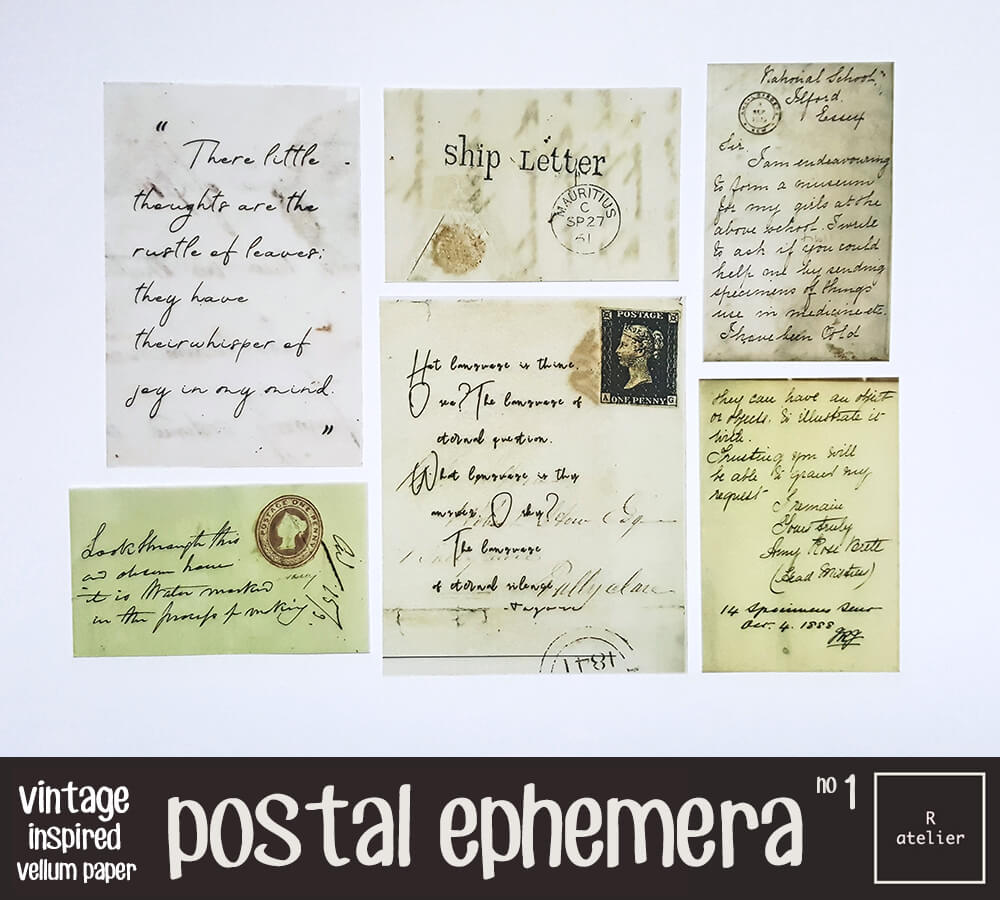 “
There little
thoughts are the
rustle of leaves;
they have
their whisper of
joy in my mind.
”
Ship Letter
MAURITIUS
C
SP 27
National School,
Ilford.
Essex
Sir
I am endeavouring
to form a museum
for my girls at the
above school. I wrote
to ask if you could
help me by sending
specimens of things
use in medicine etc.
I have been told
Look through this
and observe how
it is Water marked
in the process of making
POSTAGE ONE PENNY
POSTAGE
A ONE PENNY G
Hat language is thine,
O sea? The language of
eternal question.
What language is thy
answer, O sky?
The language
of eternal silence
-Tagore
1841
they can have an object
or objects to illustrate it
write.
Trusting you will
be able to grant my
request
I remain
Yours truly
Amy Rose Brett
(Head Mistress)
14 Specimens Sent
Oct. 4. 1888
vintage
inspired
vellum paper
postal ephemera
no 1
R
atelier